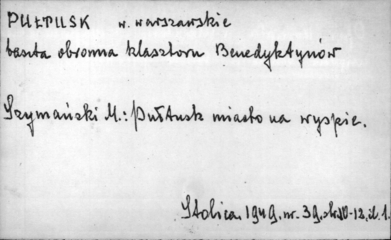 PUŁTUSK w. warszawskie
baszta obronna klasztoru Benedyktynów
Szymański M.: Pułtusk miasto na wyspie.
Stolica. 1949. nr. 39. str. 10-12, il. 1.